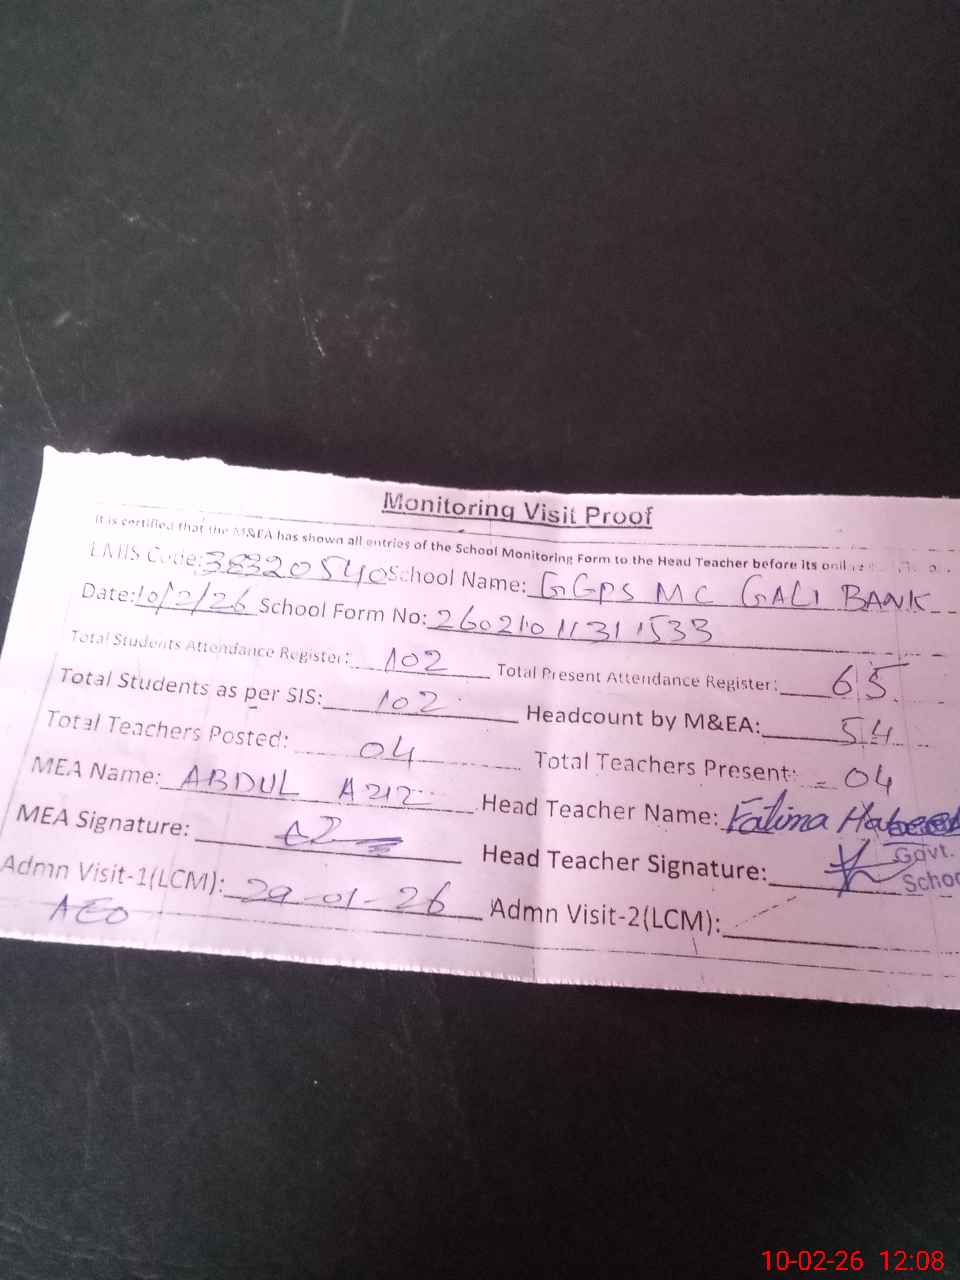 Monitoring Visit Proof
It is certified that the M&EA has shown all entries of the School Monitoring Form to the Head Teacher before its
EMIS Code: 38320540 School Name: GGPS MC GALI BANK
Date: 10/2/26 School Form No: 26021011311533
Total Students Attendance Register: 102 Total Present Attendance Register: 65
Total Students as per SIS: 102 Headcount by M&EA: 54
Total Teachers Posted: 04 Total Teachers Present: 04
MEA Name: ABDUL AZIZ Head Teacher Name: Fatima
MEA Signature: Head Teacher Signature: Govt.
Admn Visit-1(LCM): 29-01-26 Admn Visit-2(LCM):
AEO
10-02-26 12:08